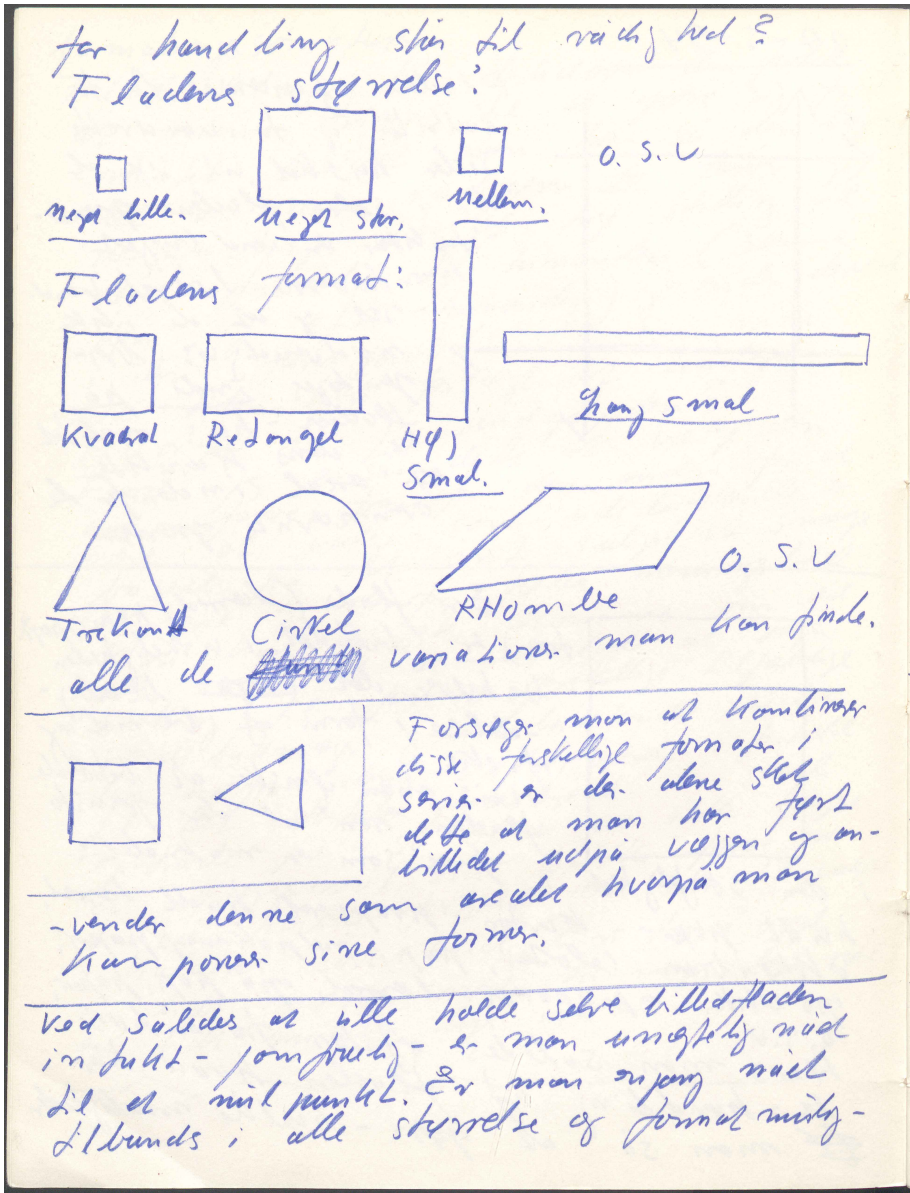 for handling står til rådighed?
Fladens størrelse:
O. S. V
Meget lille.
Meget stor.
Mellem.
Fladens format:
Kvadrat
Rektangel
Høj
Smal.
Lang smal
O. S. V
Trekant
Cirkel
RHombe
alle de variationer man kan finde.
Forsøger man at kombinerer
disse forskellige formater i
serier er der alene sket
dette at man har ført
billedet ud på væggen og an-
-vender denne som arealet hvorpå man
kan ponere sine former.
Ved således at ville holde selve billedfladen
intakt - jomfruelig - er man unægtelig nåd
til et nulpunkt. Er man engang nået
tilbunds i alle størrelse og format mulig-